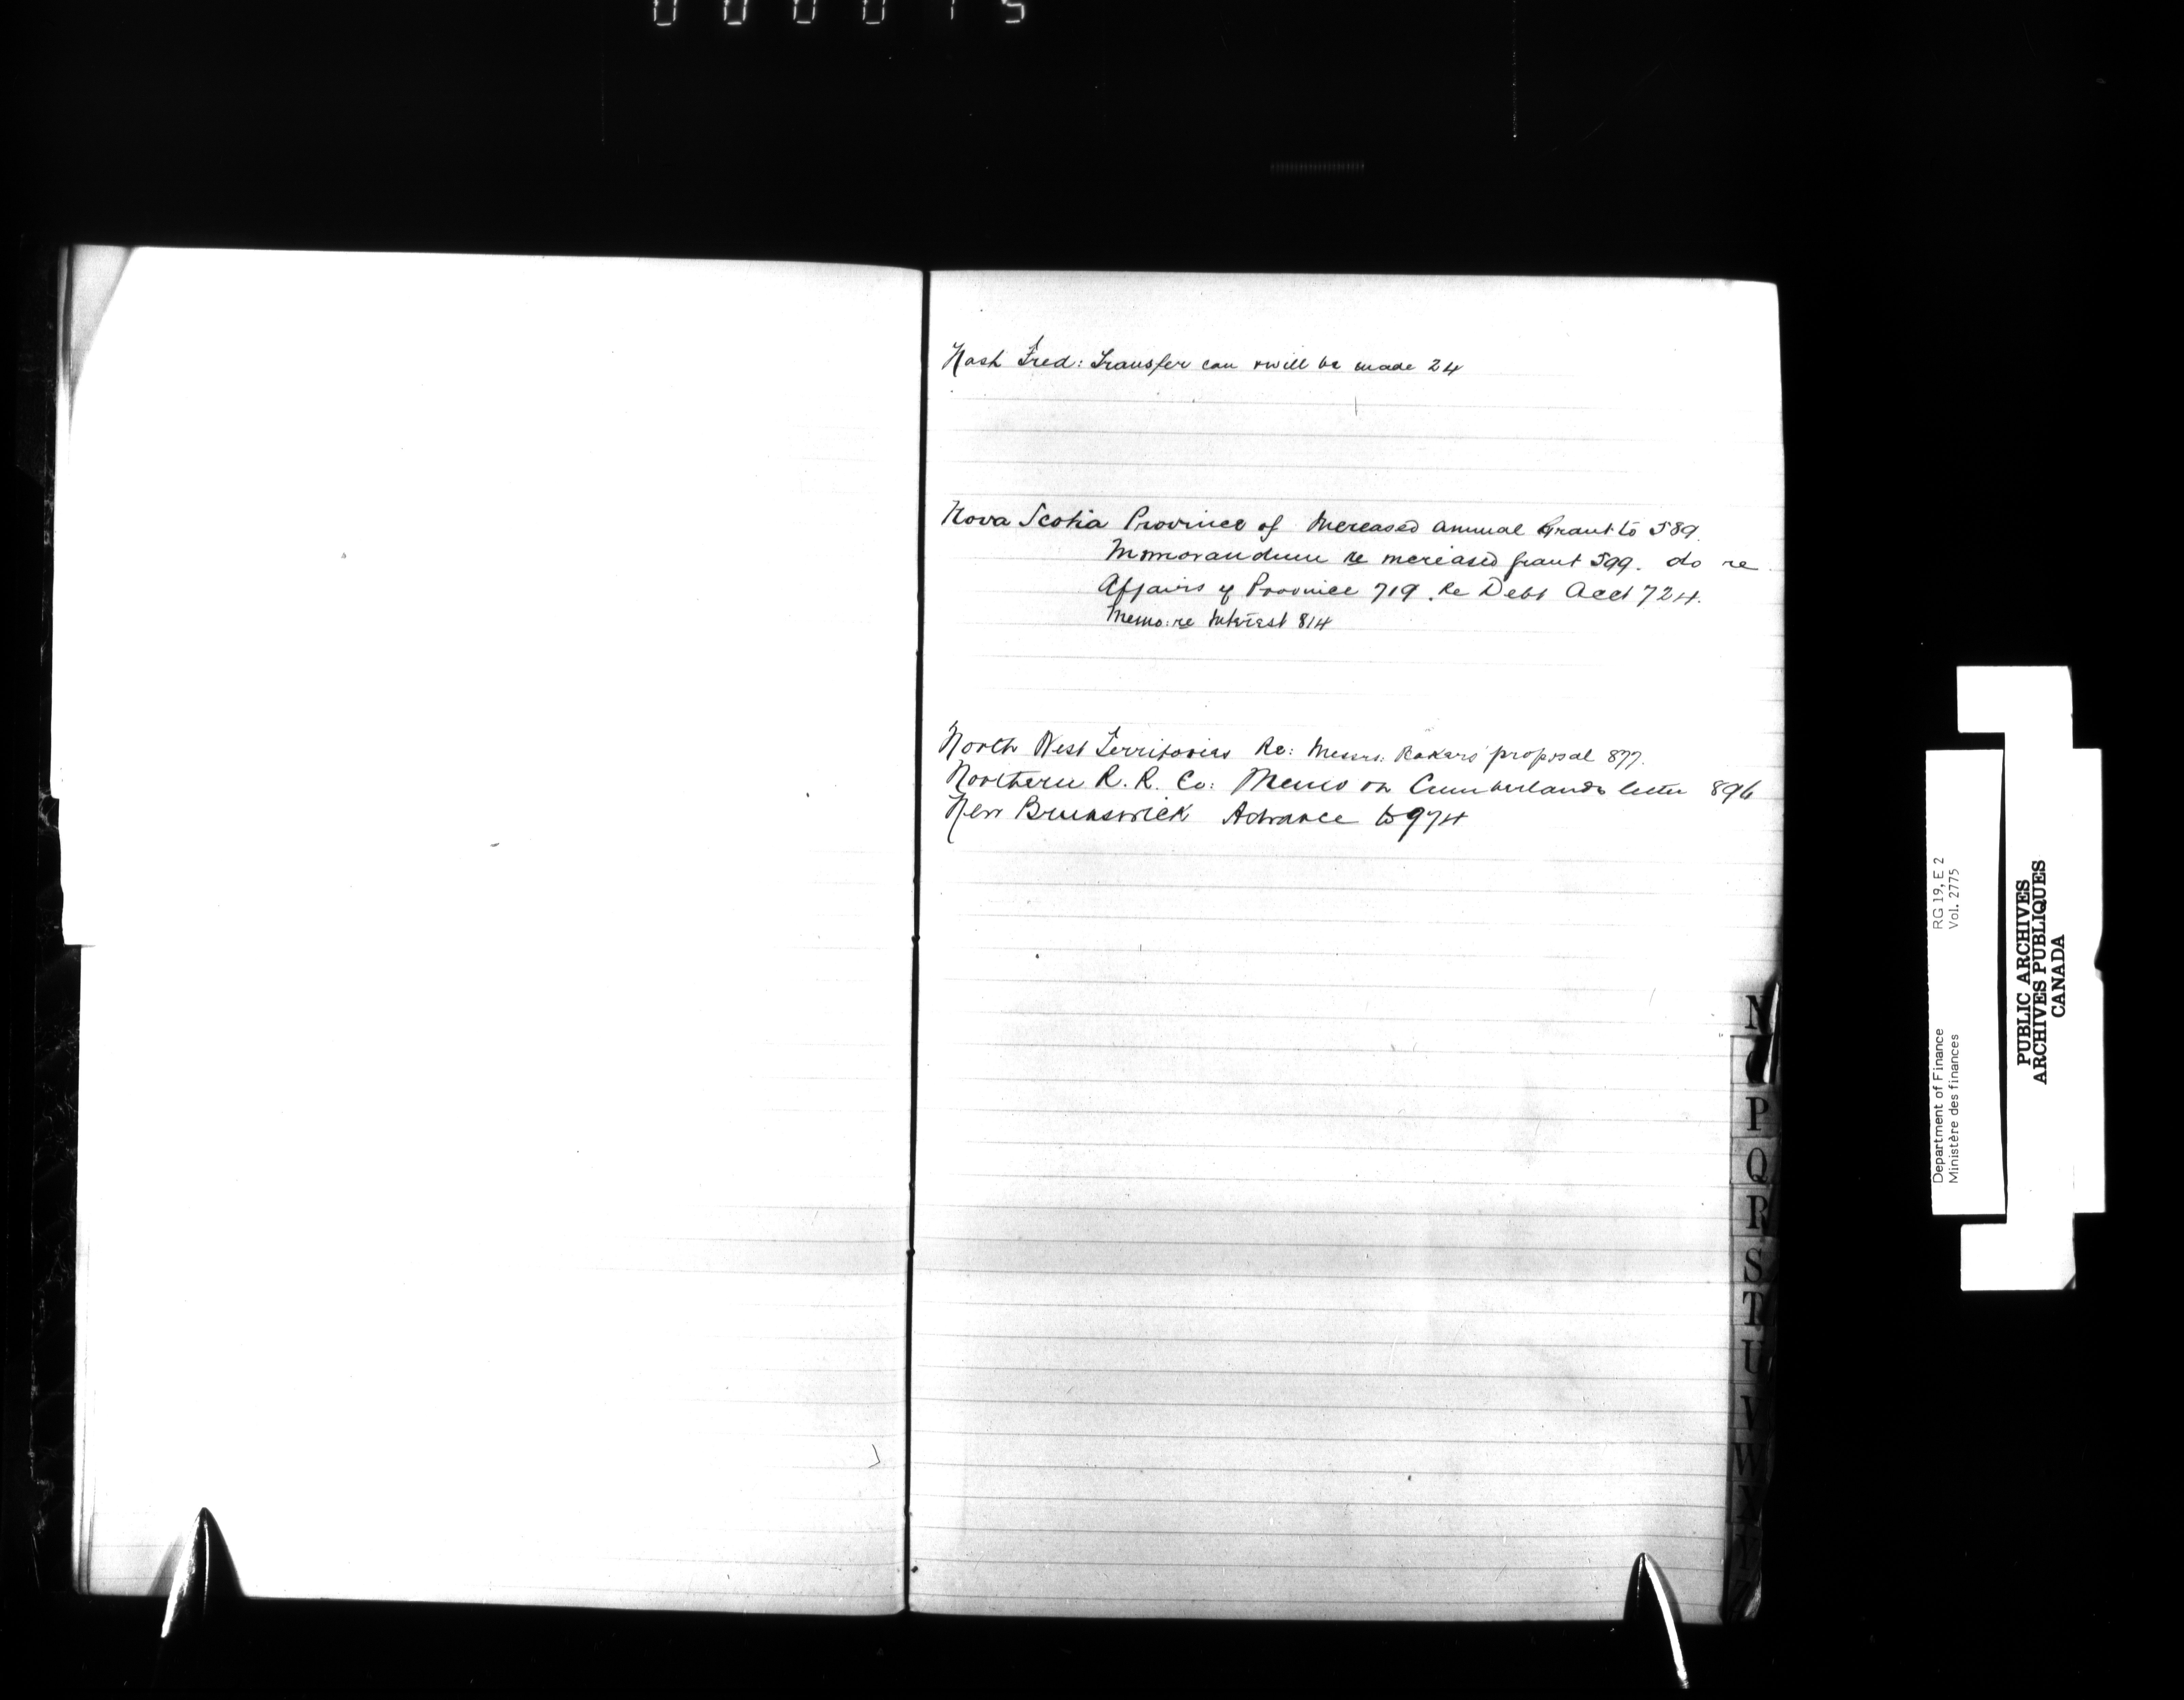 000015
Nash Fred: Transfer can & will be made 24
Nova Scotia Province of Increased annual Grant to 589.
Memorandum re increased grant 599. do re
Affairs of Province 719. Re Debt Acct 724.
Memo: re Interest 814
North West Territories Re: Messrs. Bakers' proposal 877.
Northern R. R. Co: Memo on Cumberlands letter 896
New Brunswick Advance to 974
N
O
P
Q
R
S
T
U
V
W
X
Y
Z
Department of Finance RG 19, E 2
Ministère des finances Vol. 2775
PUBLIC ARCHIVES
ARCHIVES PUBLIQUES
CANADA